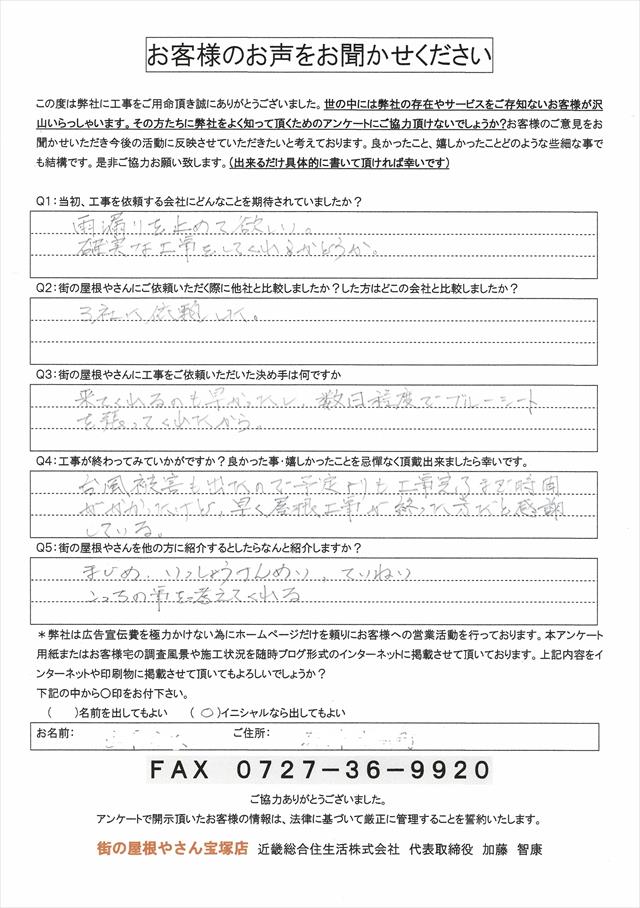 お客様のお声をお聞かせください
この度は弊社に工事をご用命頂き誠にありがとうございました。世の中には弊社の存在やサービスをご存知ないお客様が沢
山いらっしゃいます。その方たちに弊社をよく知って頂くためのアンケートにご協力頂けないでしょうか?お客様のご意見をお
聞かせいただき今後の活動に反映させていただきたいと考えております。良かったこと、嬉しかったことどのような些細な事で
も結構です。是非ご協力お願い致します。(出来るだけ具体的に書いて頂ければ幸いです)
Q1:当初、工事を依頼する会社にどんなことを期待されていましたか?
雨漏りを止めて欲しい。
確実な工事をしてくれるかどうか。
Q2:街の屋根やさんにご依頼いただく際に他社と比較しましたか?した方はどこの会社と比較しましたか?
3社に依頼した。
Q3:街の屋根やさんに工事をご依頼いただいた決め手は何ですか
来てくれるのも早かったし、数日程度でブルーシート
を張ってくれたから。
Q4:工事が終わってみていかがですか?良かった事・嬉しかったことを忌憚なく頂戴出来ましたら幸いです。
台風被害も出たので予定よりも工事完了まで時間
がかかったけど、早く屋根工事が終った方だと感謝
している。
Q5:街の屋根やさんを他の方に紹介するとしたらなんと紹介しますか?
まじめ、いっしょうけんめい、ていねい
こっちの事を考えてくれる
*弊社は広告宣伝費を極力かけない為にホームページだけを頼りにお客様への営業活動を行っております。本アンケート
用紙またはお客様宅の調査風景や施工状況を随時ブログ形式のインターネットに掲載させて頂いております。上記内容をイ
ンターネットや印刷物に掲載させて頂いてもよろしいでしょうか?
下記の中から○印をお付下さい。
( )名前を出してもよい (○)イニシャルなら出してもよい
お名前: ご住所:
FAX 0727-36-9920
ご協力ありがとうございました。
アンケートで開示頂いたお客様の情報は、法律に基づいて厳正に管理することを誓約いたします。
街の屋根やさん宝塚店 近畿総合住生活株式会社 代表取締役 加藤 智康